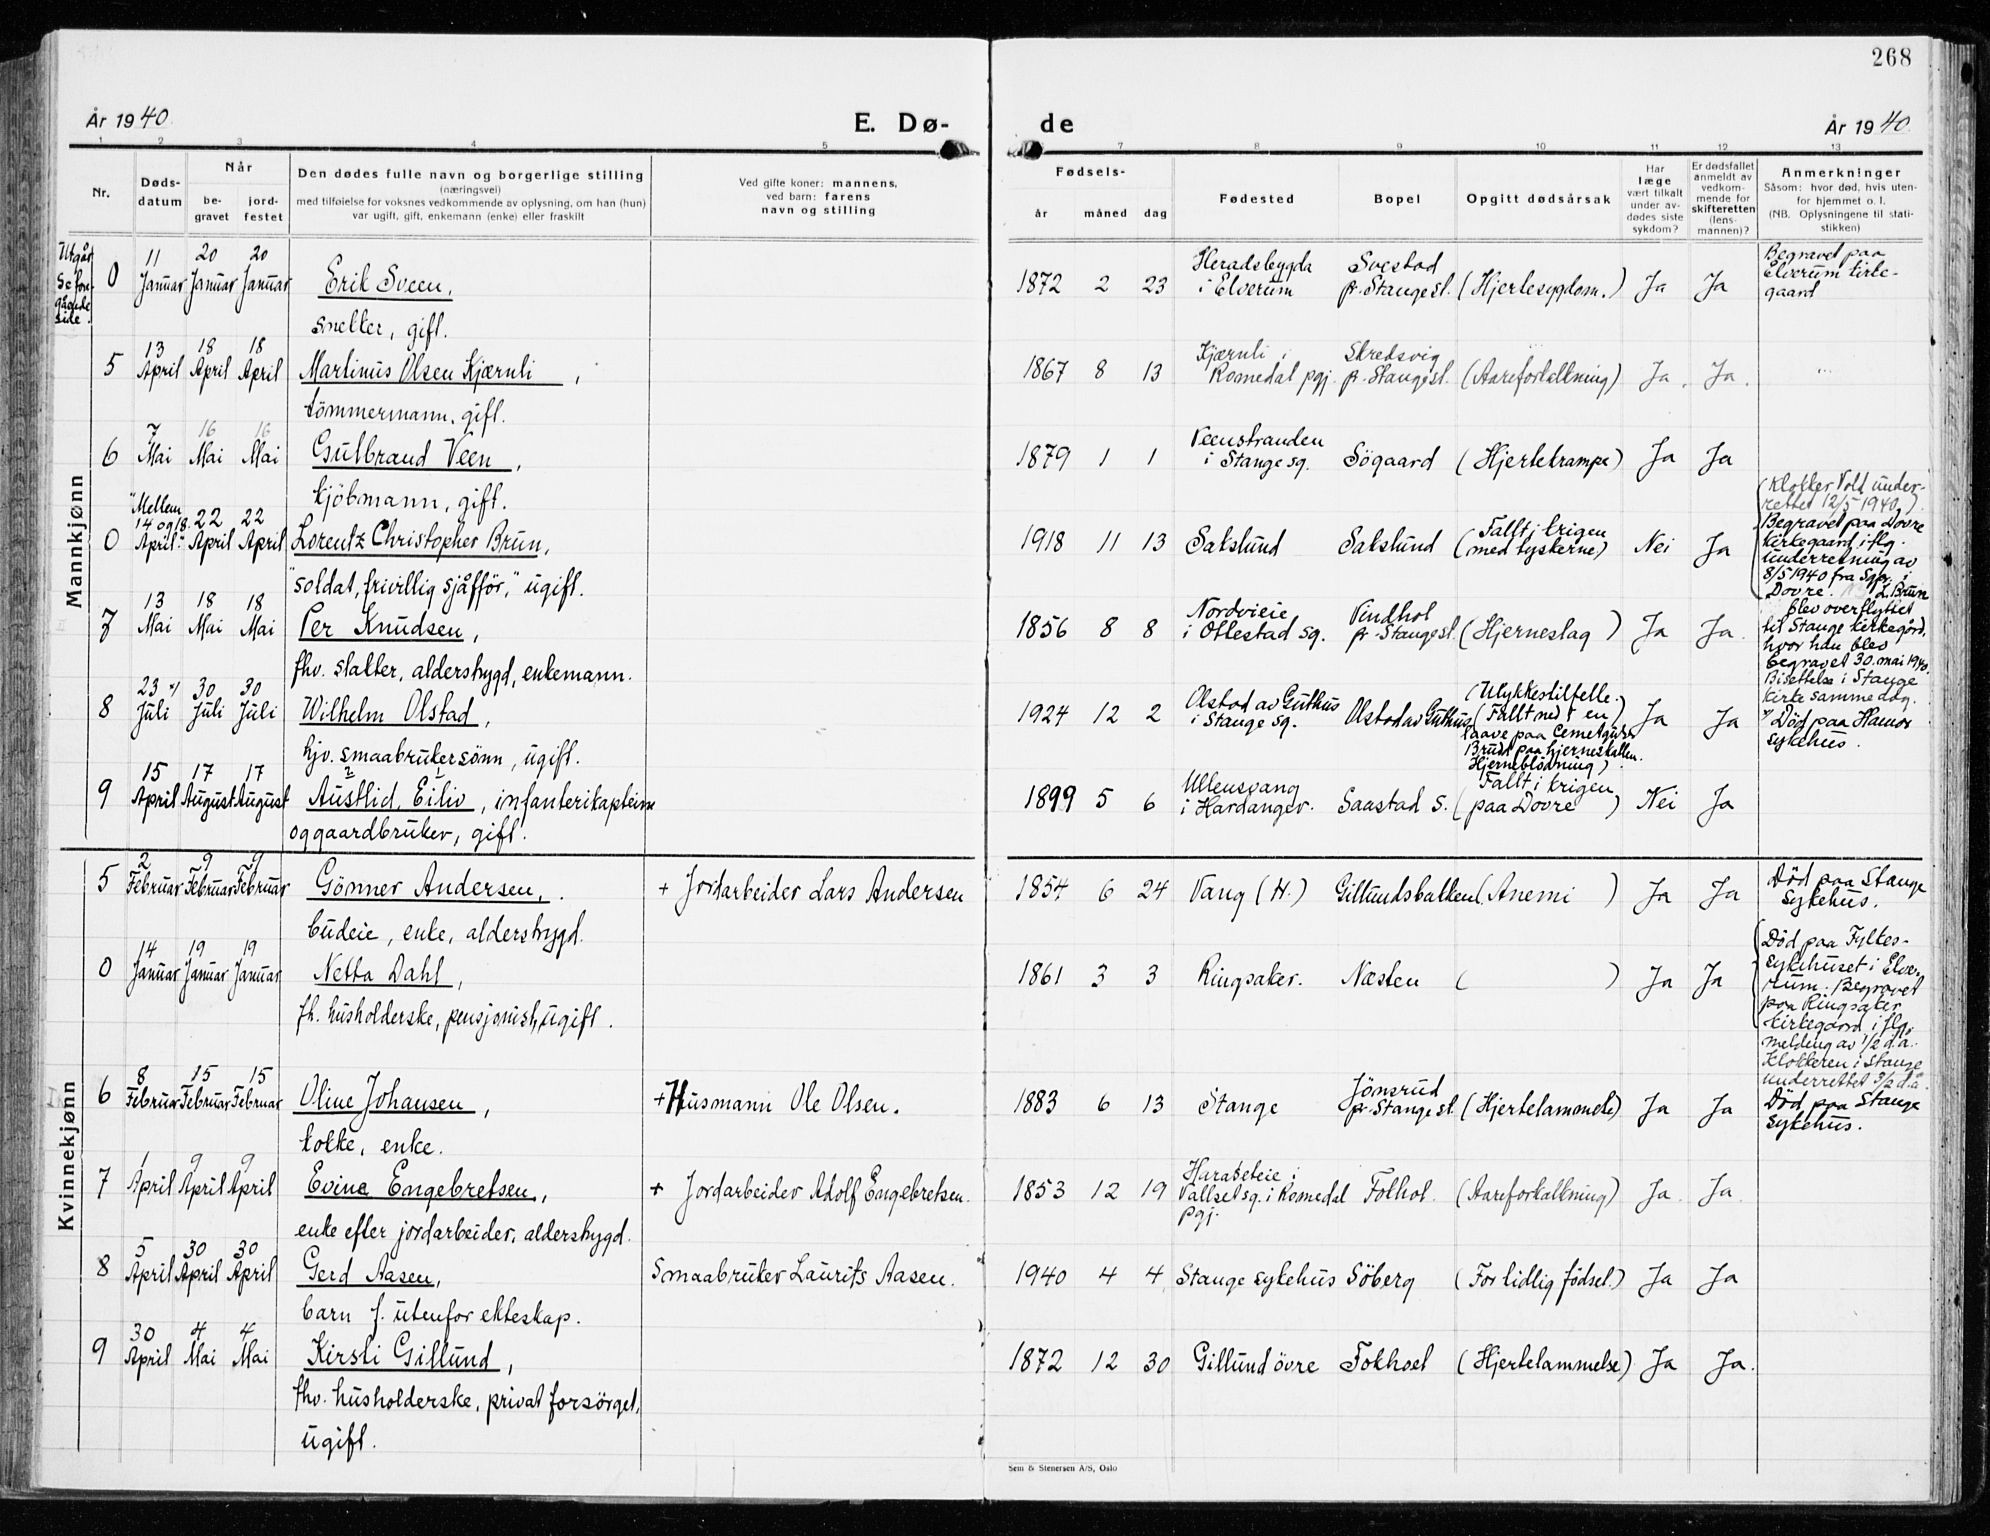 268
År 1940.
E. Dø-
de
År 1940.
1 2 3 4 5 7 8 9 10 11 12 13
Nr.
Døds-
datum
Når
be-
gravet
jord-
festet
Den dødes fulle navn og borgerlige stilling
(næringsvei)
med tilføielse for voksnes vedkommende av oplysning, om han (hun)
var ugift, gift, enkemann (enke) eller fraskilt
Ved gifte koner: mannens,
ved barn: farens
navn og stilling
Fødsels-
år måned dag
Fødested
Bopel
Opgitt dødsårsak
Har
læge
vært tilkalt
under av-
dødes siste
sykdom?
Er dødsfallet
anmeldt av
vedkom-
mende for
skifteretten
(lens-
mannen)?
Anmerkninger
Såsom: hvor død, hvis uten-
for hjemmet o. l.
(NB. Oplysningene til stati-
stikken)
Mannkjønn
Utgår
Se for-
gående
side.
0 11 Januar 20 Januar 20 Januar Erik Sveen,
smelter, gift.
1872 2 23 Heradsbygda
i Elverum
Svestad
pr. Stange st. (Hjertesygdom.) Ja Ja
Begravet paa
Elverum kirke-
gaard
5 13 April 18 April 18 April Martinus Olsen Kjærnli,
tömmermann, gift.
1867 8 13 Kjærnli i
Romedal pgj.
Skredsvig
pr. Stange st. (Aareforkalkning) Ja. Ja.
6 7 Mai 16 Mai 16 Mai Gulbrand Veen,
kjöbmann, gift.
1879 1 1 Veenstranden
i Stange sg.
Sögaard (Hjertekrampe) Ja Ja
0 "Mellem
14 og 18.
April." 22 April 22 April Lorentz Christopher Brun,
"soldat, frivillig sjåfför," ugift.
1918 11 13 Sakslund Sakslund (Fallt i krigen
med tyskerne) Nei Ja
(Klokker Vold under-
rettet 12/5 1940.)
Begravet paa Dovre
kirkegaard iflg.
underretning av
8/5 1940 fra Spr. i
Dovre. L. Brun
blev overflyttet
til Stange kirkegård,
hvor han blev
begravet 30. mai 1940.
Bisettelse i Stange
kirke samme dag.
7 13 Mai 18 Mai 18 Mai Per Knudsen,
fhv. slakter, alderstrygd, enkemann.
1856 8 8 Nordvieie
i Ottestad sg.
Vindhol
pr. Stange st. (Hjerneslag) Ja Ja.
8 23 Juli 30 Juli 30 Juli Wilhelm Olstad,
hjv. smaabrukersönn, ugift.
1924 12 2 Olstad av Guthus
i Stange sg.
Olstad av Guthus
(Ulykkestilfelle.)
(Fallt ned i en
laave paa
Brudd paa hjerneskallen.
Hjerneblödning)
Ja Ja
Död paa Hamar
sykehus.
9 15 April 17 August 17 August Austlid, Eiliv, infanterikaptein
og gaardbruker, gift.
1899 5 6 Ullensvang
i Hardanger.
Saastad s. (Fallt i krigen
paa Dovre) Nei Ja
Kvinnekjønn
5 2 Februar 9 Februar 9 Februar Gönner Andersen,
budeie, enke, alderstrygd.
+ Jordarbeider Lars Andersen
1854 6 24 Vang (H.) Gillundsbakken (Anemi) Ja Ja
Död paa Stange
sykehus.
0 14 Januar 19 Januar 19 Januar Netta Dahl,
fh. husholderske, pensjonist, ugift.
1861 3 3 Ringsaker. Næsten ( ) Ja Ja
Död paa Fylkes-
sykehuset i Elve-
rum. Begravet
paa Ringsaker
kirkegaard iflg.
melding av 1/2 d.a.
Klokkeren i Stange
underrettet 3/2 d.a.
6 8 Februar 15 Februar 15 Februar Oline Johansen,
kokke, enke.
+ Husmann Ole Olsen.
1883 6 13 Stange Jönsrud
pr. Stange st. (Hjertelammelse) Ja Ja
Död paa Stange
sykehus.
7 1 April 9 April 9 April Evine Engebretsen,
enke efter jordarbeider, alderstrygd.
+ Jordarbeider Adolf Engebretsen.
1853 12 19 Haraseteie i
Vallset sg. i Romedal
pgj.
Fokhol. (Aareforkalkning) Ja. Ja.
8 5 April 30 April 30 April Gerd Aasen,
barn f. utenfor ekteskap.
Smaabruker Laurits Aasen.
1940 4 4 Stange sykehus Söberg (For tidlig födsel.) Ja Ja
9 30 April 4 Mai 4 Mai Kirsti Gillund,
fhv. husholderske, privat forsörget,
ugift.
1872 12 30 Gillund övre Fokhoel (Hjertelammelse) Ja Ja.
Sem & Stenersen A/S, Oslo